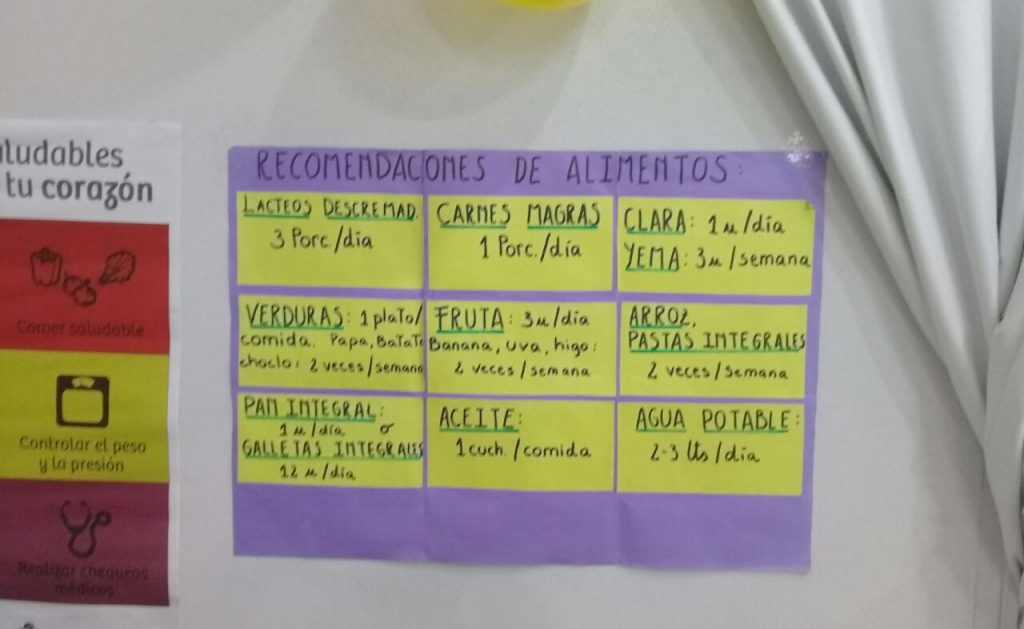 ludables
tu corazón
Comer saludable
Controlar el peso
y la presión
Realizar chequeos
médicos
RECOMENDACIONES DE ALIMENTOS:
LACTEOS DESCREMAD.
3 Porc./día
CARNES MAGRAS
1 Porc./día
CLARA: 1u/día
YEMA: 3u/semana
VERDURAS: 1 plato/
comida. Papa, Batata
choclo: 2 veces/semana
FRUTA: 3u/día
Banana, uva, higo:
2 veces/semana
ARROZ,
PASTAS INTEGRALES
2 veces/semana
PAN INTEGRAL:
1u/día o
GALLETAS INTEGRALES
12u/día
ACEITE:
1cuch./comida
AGUA POTABLE:
2-3 lts/día